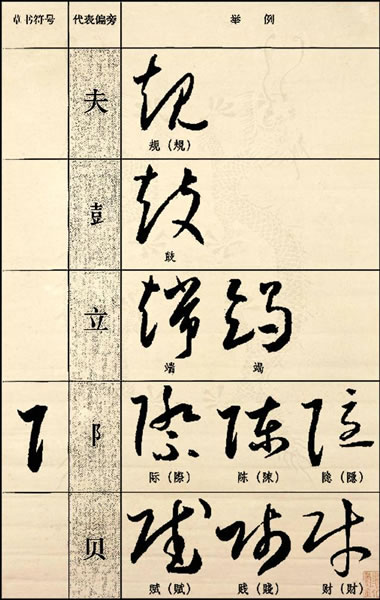 草书符号 代表偏旁 举例
夫
规（規）
壴
立
端 竭
阝
际（際） 陈（陳） 隐（隱）
贝
赋（賦） 贱（賤） 财（財）